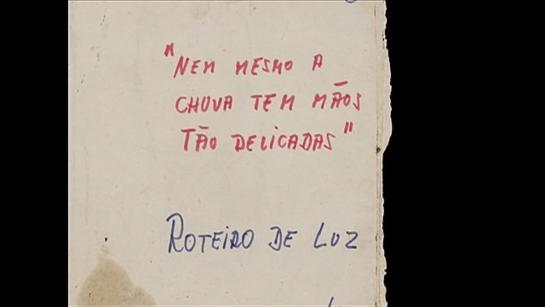 "NEM MESMO A
CHUVA TEM MÃOS
TÃO DELICADAS"
ROTEIRO DE LUZ